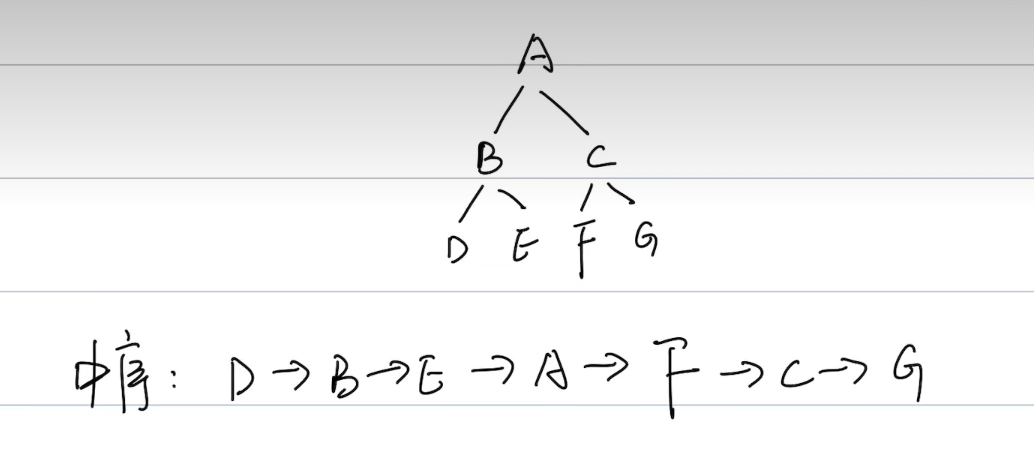 A
B C
D E F G
中序: D→B→E→A→F→C→G